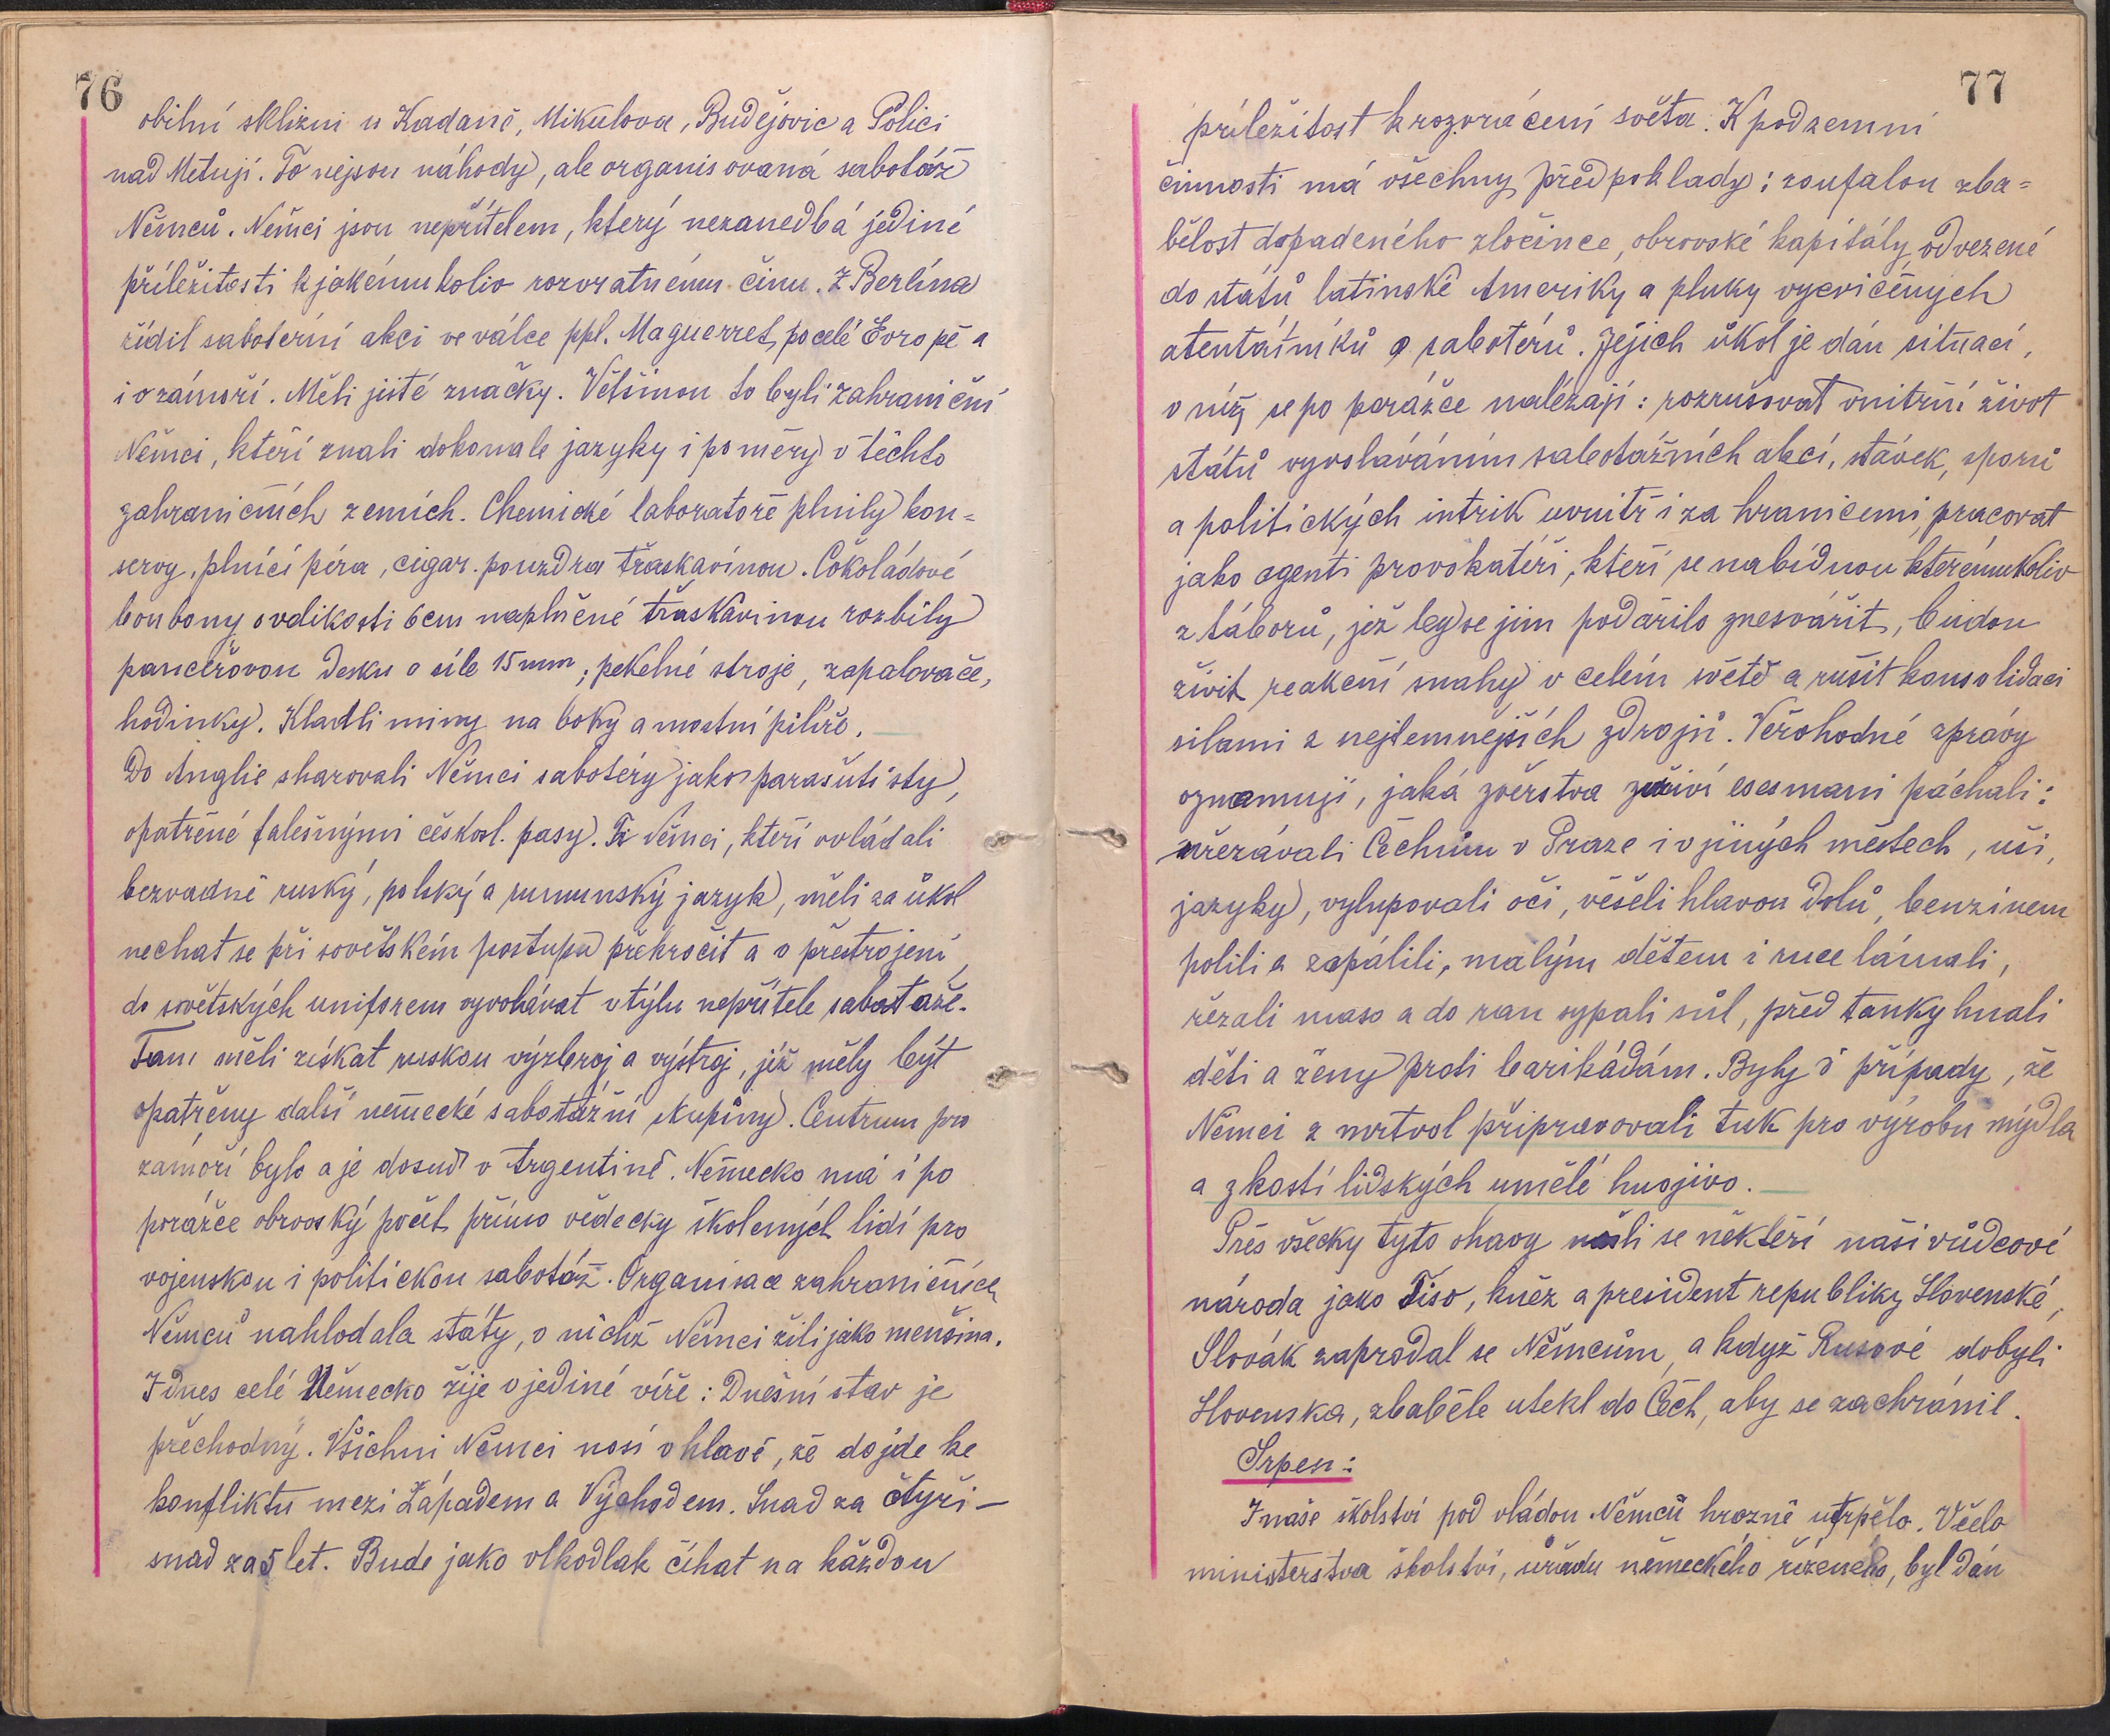 76
obilní sklizni u Kadaně, Mikulova, Budějovic a Polici
nad Metují. To nejsou náhody, ale organisovaná sabotáž
Němců. Němci jsou nepřítelem, který nezanedbá jediné
příležitosti k jakémukoliv rozvratnému činu. Z Berlína
řídil saboterní akci ve válce ppl. Maguerret, po celé Evropě a
i v zámoří. Měli jisté značky. Většinou to byli zahraniční
Němci, kteří znali dokonale jazyky i poměry v těchto
zahraničních zemích. Chemické laboratoře plnily kon=
servy, plnící péra, cigar. pouzdra třaskavinou. Čokoládové
bonbony o velikosti 6cm naplněné třaskavinou rozbily
pancéřovou desku o síle 15 mm; pekelné stroje, zapalovače,
hodinky. Kladli miny na boky a mostní pilíře.
Do Anglie sharovali Němci sabotéry jako parašutisty,
opatřené falešnými českosl. pasy. Ti Němci, kteří ovládali
bezvadně ruský, polský a rumunský jazyk, měli za úkol
nechat se při sovětském postupu překročit a v přestrojení
do sovětských uniforem vyvolávat v týlu nepřítele sabotaže.
Tam měli získat ruskou výzbroj a výstroj, jíž měly být
opatřeny další německé sabotážní skupiny. Centrum pro
zámoří bylo a je dosud v Argentině. Německo má i po
porážce obrovský počet přímo vědecky školených lidí pro
vojenskou i politickou sabotáž. Organisace zahraničních
Němců nahlodala státy, v nichž Němci žili jako menšina.
I dnes celé Německo žije v jediné víře: Dnešní stav je
přechodný. Všichni Němci nosí v hlavě, že dojde ke
konfliktu mezi Západem a Východem. Snad za čtyři –
snad za 5 let. Bude jako vlkodlak číhat na každou
77
příležitost k rozvrácení světa. K podzemní
činnosti má všechny předpoklady: zoufalou zba=
bělost dopadeného zločince, obrovské kapitály, odvezené
do států latinské Ameriky a pluky vycvičených
atentátníků a sabotérů. Jejich úkol je dán situací,
v níž se po porážce nalézají: rozrušovat vnitřní život
států vyvoláváním sabotážních akcí, stávek, sporů
a politických intrik uvnitř i za hranicemi, pracovat
jako agenti provokatéři, kteří se nabídnou kterémukoliv
z táborů, jež by se jim podařilo znesvářit, budou
živit reakční snahy v celém světě a rušit konsolidaci
silami z nejtemnějších zdrojů. Věrohodné zprávy
oznamují, jaká zvěrstva zuřiví esesmani páchali:
uřezávali Čechům v Praze i v jiných městech, uši,
jazyky, vylupovali oči, věšeli hlavou dolů, benzinem
polili a zapálili, malým dětem i ruce lámali,
řezali maso a do ran sypali sůl, před tanky hnali
děti a ženy proti barikádám. Byly i případy, že
Němci z mrtvol připravovali tuk pro výrobu mýdla
a z kostí lidských umělé hnojivo.
Přes všecky tyto ohavy našli se někteří naši vůdcové
národa jako Tiso, kněz a president republiky Slovenské,
Slovák zaprodal se Němcům, a když Rusové dobyli
Slovenska, zbaběle utekl do Čech, aby se zachránil.
Srpen:
I naše školství pod vládou Němců hrozně utrpělo. Včelo
ministerstva školství, úřadu německého řízeného, byl dán